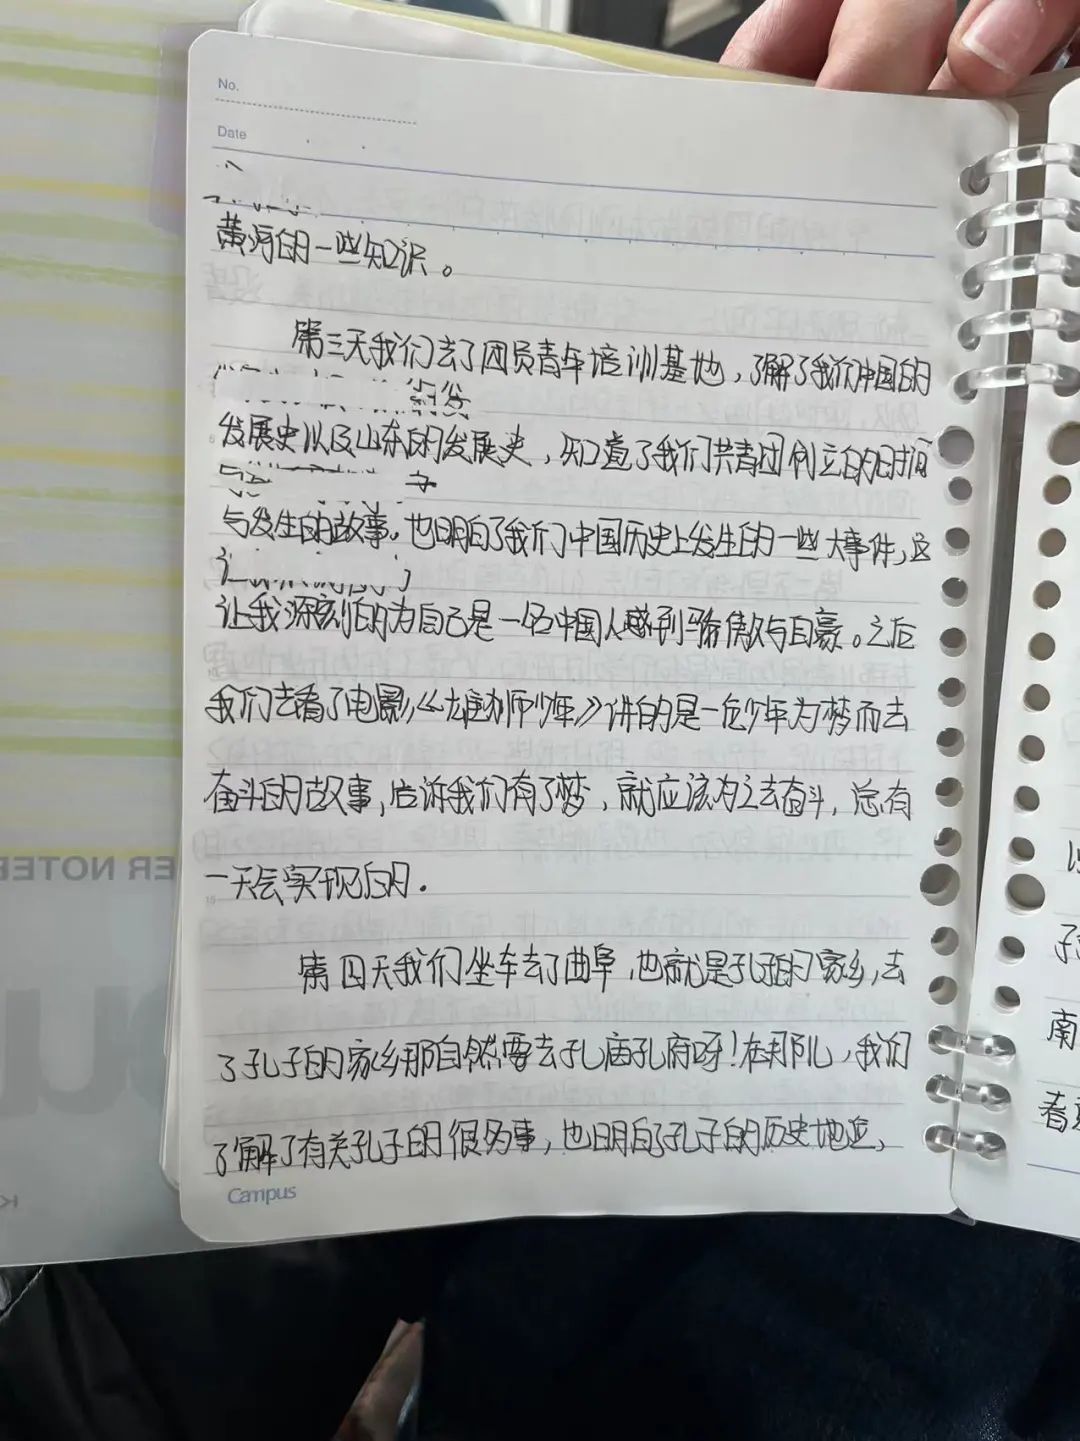 No.
Date
黄河的一些知识。
第三天我们去了团员青年培训基地,了解了我们中国的
发展史以及山东的发展史,知道了我们共青团创立的时间
与发生的故事。也明白了我们中国历史上发生的一些大事件,这
让我深刻的为自己是一名中国人感到骄傲与自豪。之后
我们去看了电影《雄狮少年》讲的是一位少年为梦而去
奋斗的故事,告诉我们有了梦,就应该为之去奋斗,总有
一天会实现的.
第四天我们坐车去了曲阜,也就是孔子的家乡,去
了孔子的家乡那自然要去孔庙孔府呀!在那儿,我们
了解了有关孔子的很多事,也明白了孔子的历史地位,
Campus
南
春